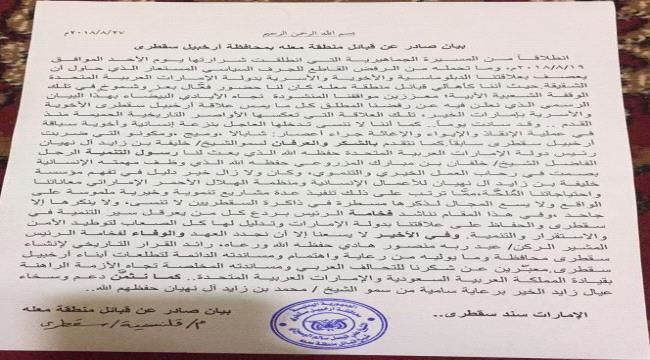 بسم الله الرحمن الرحيم
٢٠١٨/٨/٢٧م
بيان صادر عن قبائل منطقة معله بمحافظة أرخبيل سقطرى
انطلاقاً من المسيرة الجماهيرية التي انطلقت شرارتها يوم الأحد الموافق
٢٠١٨/٨/١٩م، وما تحمله من الرفض القاطع للجرف السياسي المستعار الذي حاول أن
يعصف بعلاقتنا الدبلوماسية والأخوية والأسرية بدولة الإمارات العربية المتحدة
الشقيقة حيث أننا كأهالي قبائل منطقة معله كان لنا حضور فعّال بعز وشموخ في تلك
الوقفة الشعبية الأبية؛ معززين مواقفنا المنشودة تجاه الأيادي البيضاء بهذا البيان
الرسمي الذي نعلن فيه عن رفضنا المطلق كل ما يمس علاقة أرخبيل سقطرى الأخوية
والأسرية بإمارات الخير، تلك العلاقة التي تعكسها الأواصر التاريخية الحميمة منذ
القدم .. وقد سادت يوماً.. كما أننا لا ننسى تدخلها العاجل بنزعة إنسانية وأخوية سباقة
في عملية الإنقاذ والإيواء والإغاثة جراء إعصار: شابالا، وميج، ومكونو التي ضربت
أرخبيل سقطرى سابقاً.كما نتقدم بالشكر والعرفان لسمو الشيخ/ خليفة بن زايد آل نهيان
رئيس دولة الإمارات العربية المتحدة حفظه الله الذي بعث لنا رسول التنمية الرجل
الفاضل الشيخ/ خلفان بن مبارك المزروعي حفظه الله الذي وظف مهمته الإنسانية
بصمت في رحاب العمل الخيري والتنموي، وكان ولا زال خير دليل في تفهم مؤسسة
خليفة بن زايد آل نهيان للأعمال الإنسانية ومنظمة الهلال الأحمر الإماراتي معاناتنا
واحتياجاتنا المُلحّة ممّا ترتب على ذلك تنفيذ عدة مشاريع تنموية وخيرية ملموسة على
الواقع ولا يسع المجال لذكرها مسطرة في ذاكرة السقطريين لا تنسى، ولا ينكرها إلا
جاحد، وفي هذا المقام نناشد فخامة الرئيس بردع كل من يعرقل سير التنمية في
سقطرى والحفاظ على علاقتنا بدولة الإمارات وتذليل لها كل الصعاب لتوطيد الأمن
والاستقرار والتنمية. وفي الأخير لا يسعنا إلا أن نجدد العهد والوفاء لفخامة الرئيس
المشير الركن/ عبد ربه منصور هادي حفظه الله ورعاه، رائد القرار التاريخي لإنشاء
سقطرى محافظة وما يوليه من رعاية واهتمام ومساندته الدائمة لتطلعات أبناء أرخبيل
سقطرى، معبّرين عن شكرنا للتحالف العربي ومساندته المخلصة تجاه الأزمة الراهنة
بقيادة المملكة العربية السعودية والإمارات العربية المتحدة. كما نُثمّن دعم وسخاء
عيال زايد الخير برعاية سامية من سمو الشيخ / محمد بن زايد آل نهيان حفظهم الله..
الإمارات سند سقطرى..
بيان صادر عن قبائل منطقة معله
م/ قلنسية/ سقطرى